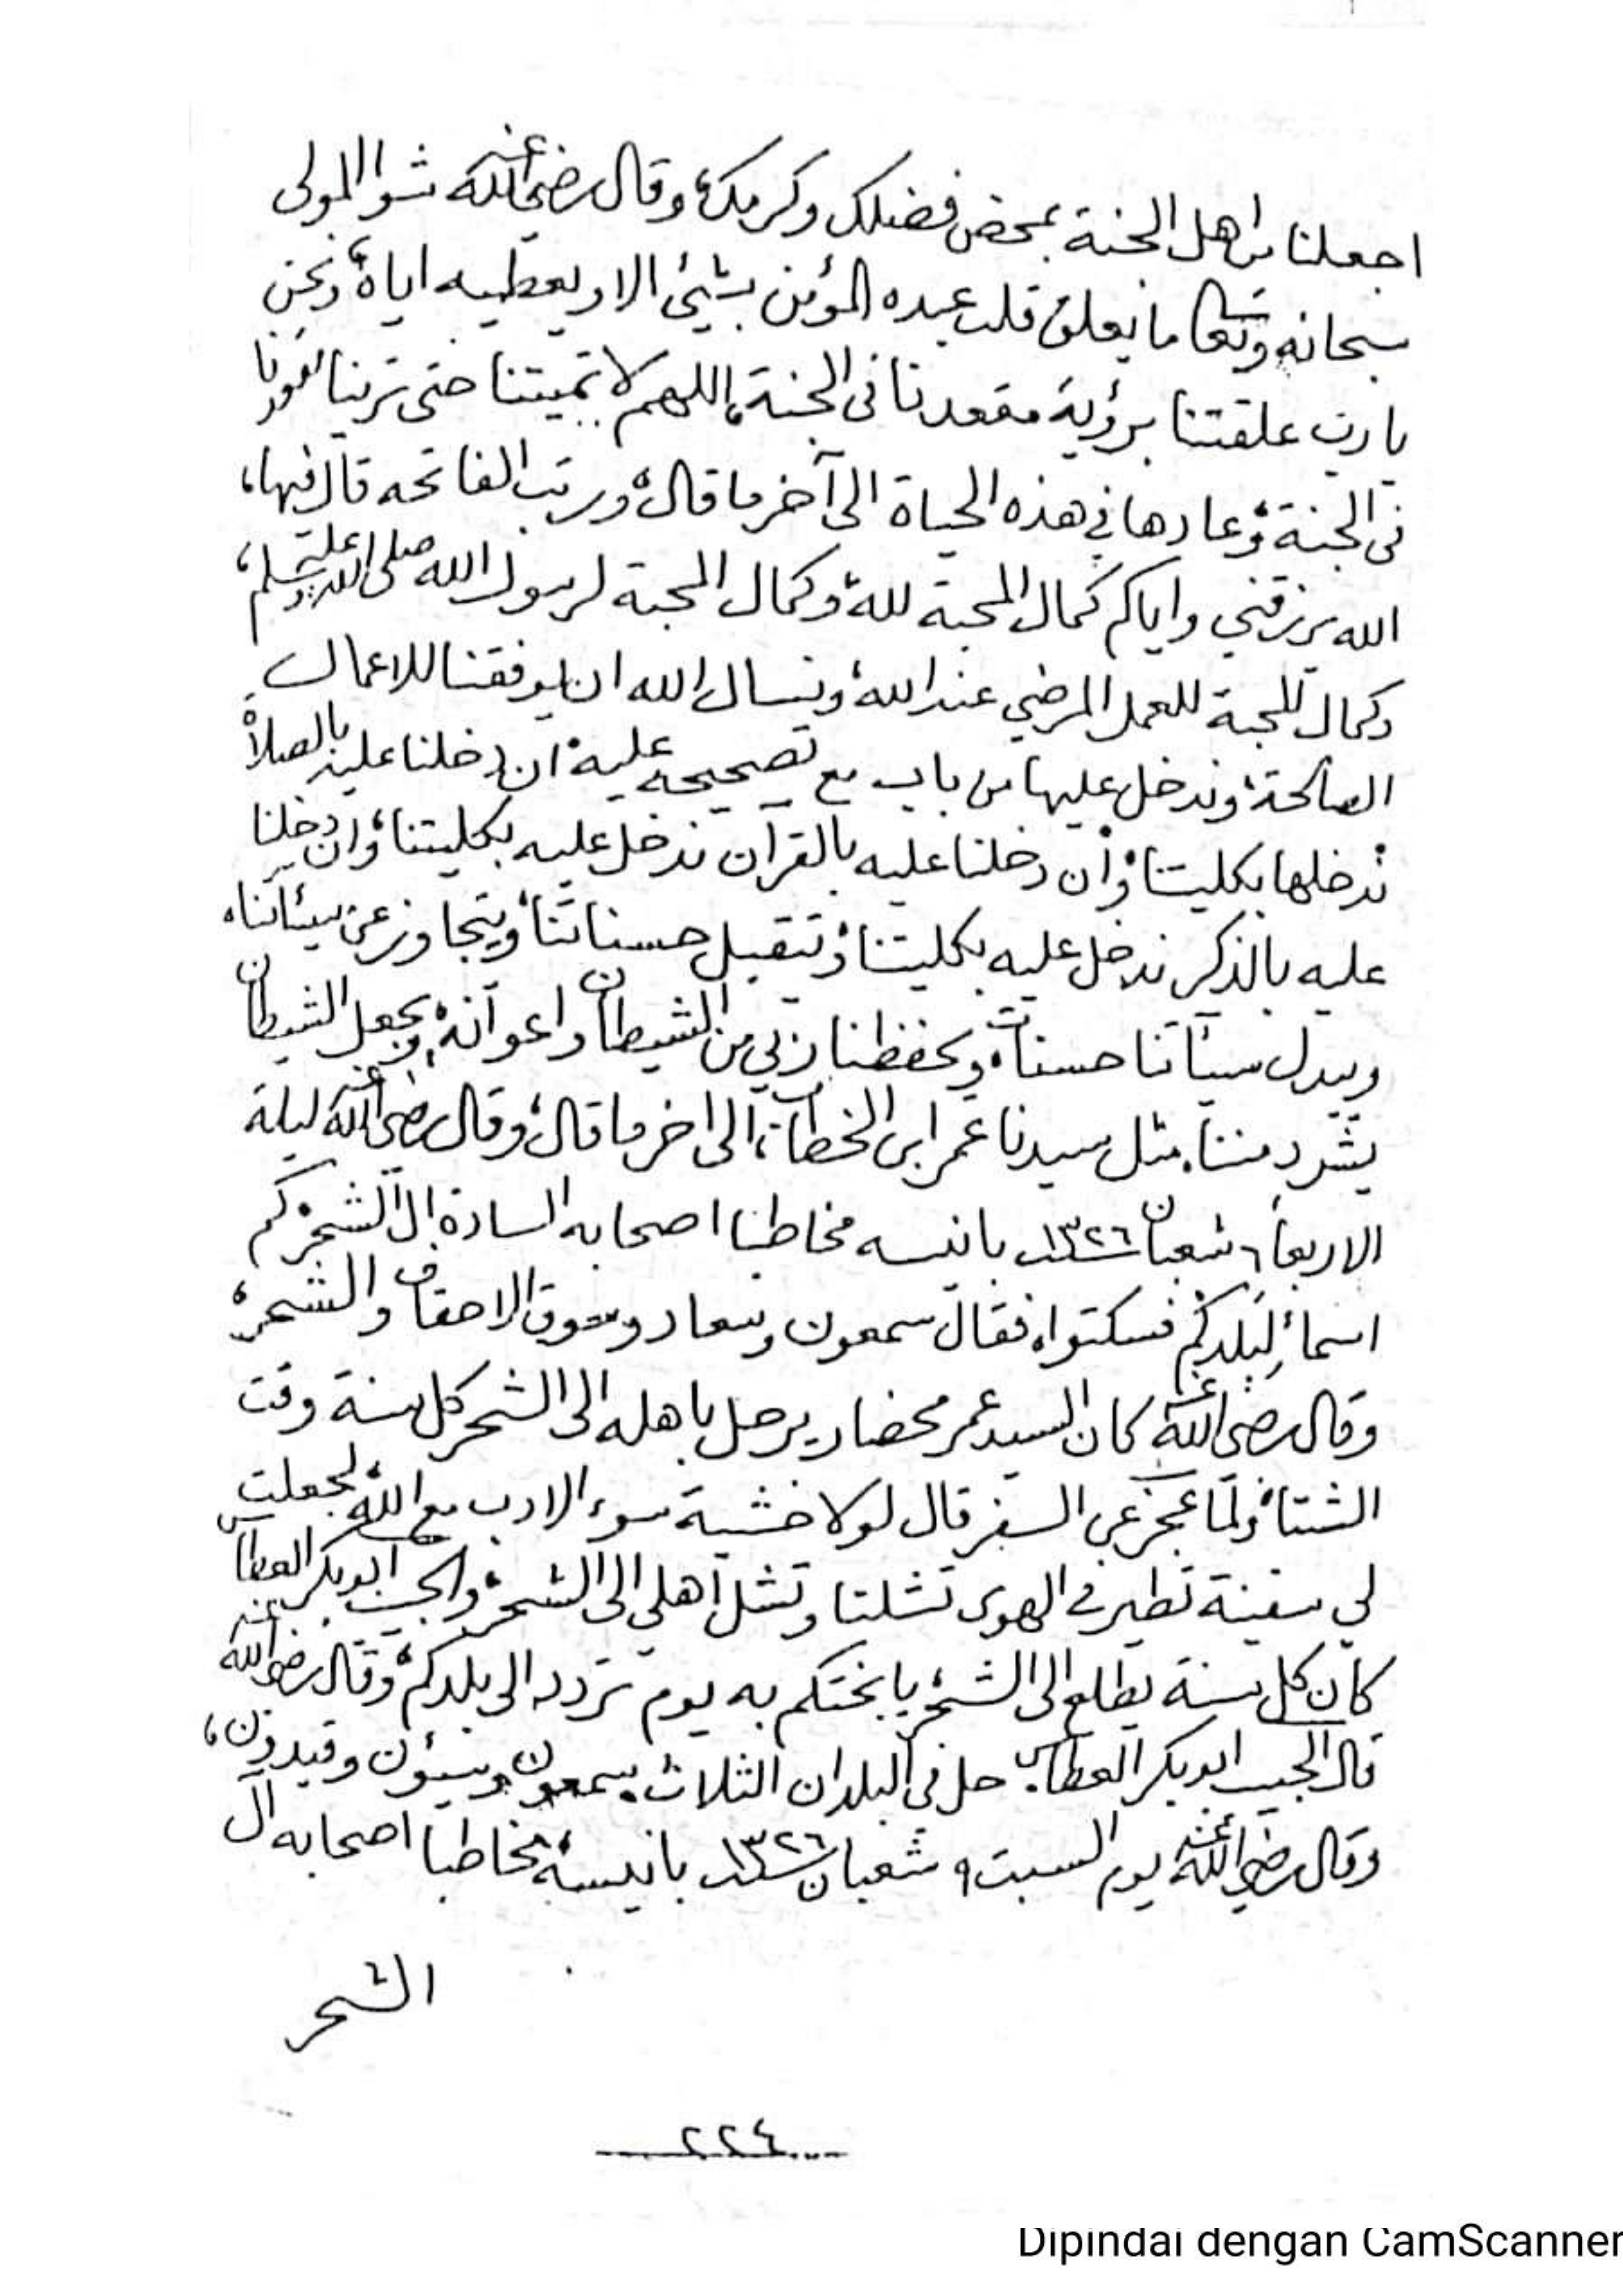 اجعلنا من اهل الجنة بمحض فضلك وكرمك، وقال رضي الله عنه شوا المولى
سبحانه وتعالى ما يعلق قلب عبده المؤمن بشيئ الا ويعطيه اياه، ونحن
يا رب علقتنا برؤية مقعدنا في الجنة، اللهم لا تميتنا حتى ترينا
في الجنة، وعادها في هذه الحياة الى آخر ما قال، ورتب الفاتحه قال فيها،
الله يرزقني واياكم كمال المحبة لله، وكمال المحبة لرسول الله صلى الله عليه وسلم،
وكمال المحبة للعمل المرضي عند الله، ونسال الله ان يوفقنا للاعمال
الصالحة، وندخل عليها من باب مع تصحيحه عليه، ان دخلنا عليه بالصلاة
ندخلها بكليتنا، وان دخلنا عليه بالقرآن ندخل عليه بكليتنا، وان دخلنا
عليه بالذكر ندخل عليه بكليتنا، وتتقبل حسناتنا، ويتجاوز عن سيئاتنا،
ويبدل سيآتنا حسنات، ويحفظنا ربي من الشيطان واعوانه، ويجعل الشيطان
يشرد مننا، مثل سيدنا عمر ابن الخطاب، الى اخر ما قال، وقال رضي الله عنه ليلة
الاربعاء ٦ شعبان سنة ١٣٢٦ بانيسه مخاطبا اصحابه السادة آل الشحر، كم
اسماء لبلدكم، فسكتوا، فقال سمعون وسعاد وسوق الاحقاف والشحر،
وقال رضي الله عنه كان السيد عمر محضار يرحل باهله الى الشحر كل سنة وقت
الشتاء، ولما عجز عن السفر قال لولا خشية سوء الادب مع الله، لجعلت
لي سفينة تطير في الهوى تشلنا وتشل اهلي الى الشحر، والحبيب ابوبكر العطاس
كان كل سنة يطلع الى الشحر، يا بختكم به يوم تردد الى بلدكم، وقال رضي الله عنه
قال الحبيب ابوبكر العطاس، حل في البلدان الثلاث، سمعون وسيؤن وقيدون،
وقال رضي الله عنه يوم السبت ٩ شعبان سنة ١٣٢٦ بانيسة، مخاطبا اصحابه آل
الشحر
٢٢٤
Dipindai dengan CamScanner